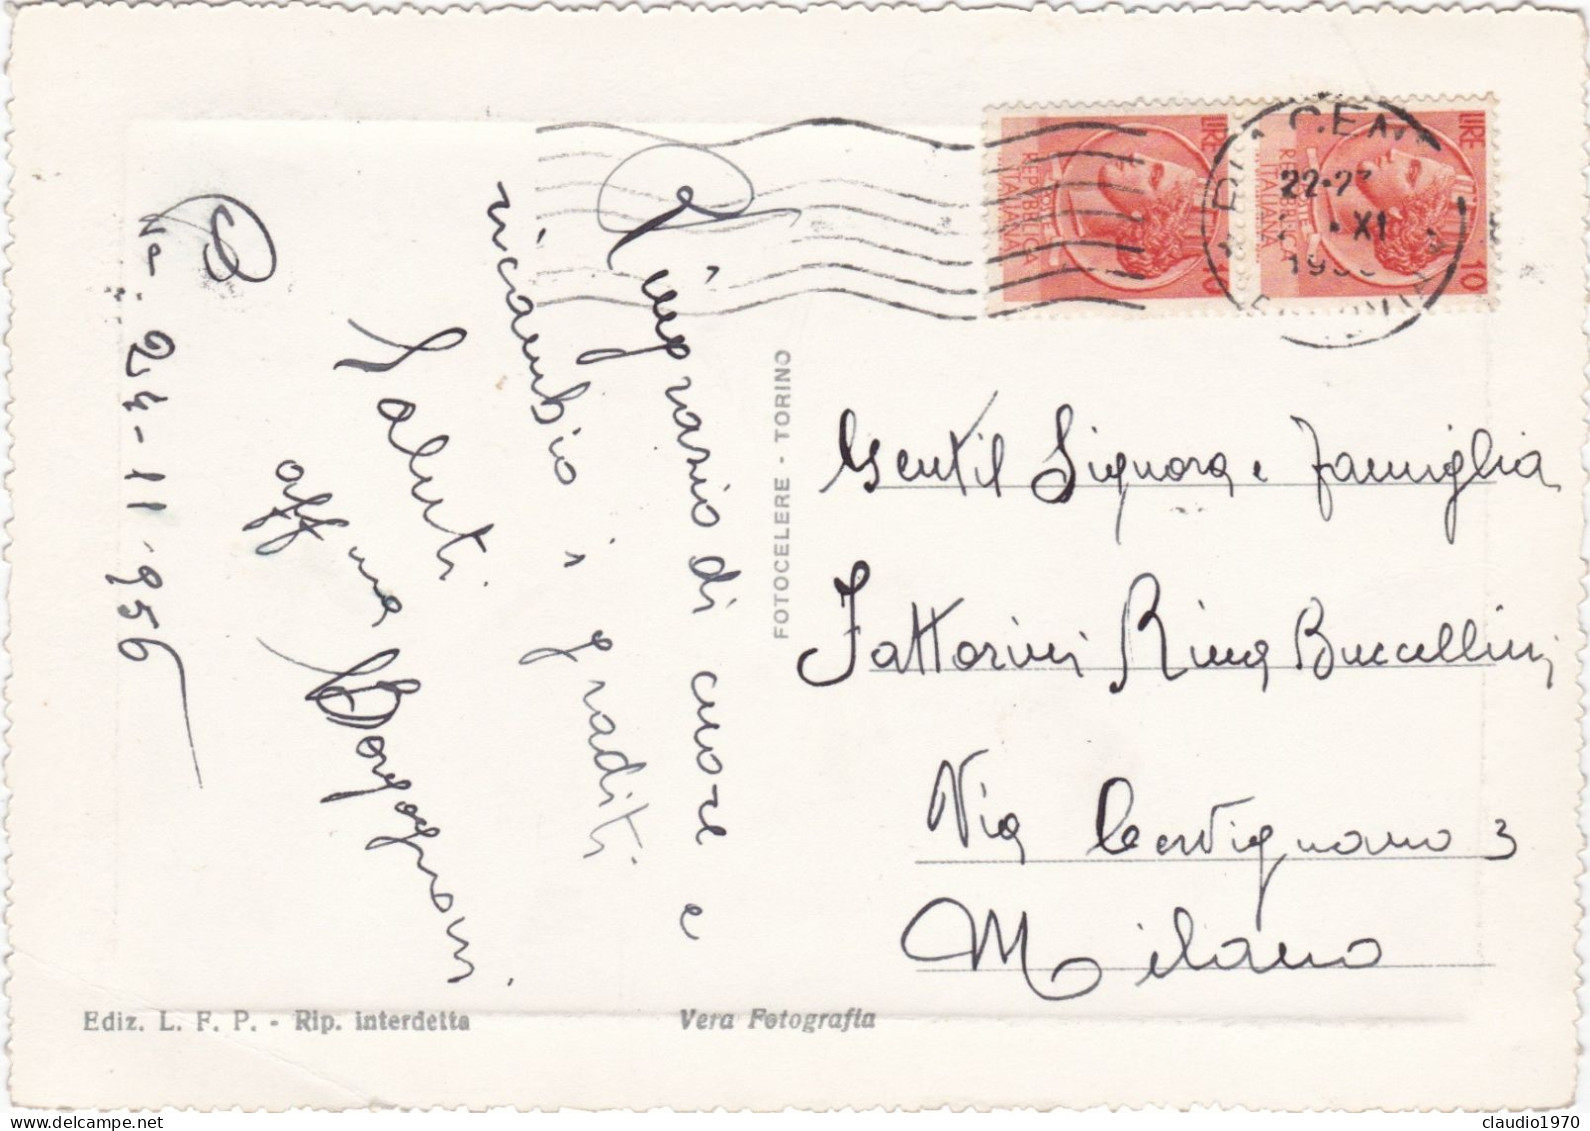 Pc. 24-11-956
Ringrazio di cuore e
ricambio i graditi
Saluti
aff.ma Borgognoni
FOTOCELERE - TORINO
LIRE
REPUBBLICA
ITALIANA
10
LIRE
REPUBBLICA
ITALIANA
10
22-23
XI
Gentil Signora e Famiglia
Fattorini Rina Buccellini
Via Cervignano 3
Milano
Ediz. L. F. P. - Rip. interdetta
Vera Fotografia
claudio1970